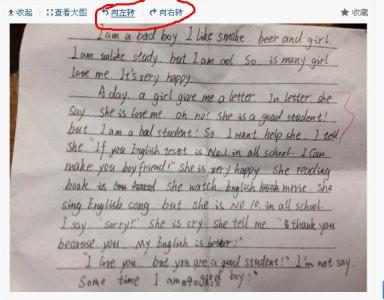 收起 查看大图 向左转 向右转 收藏
I am a bad boy I like smoke. beer and girl.
I am unlike study. but I am cool So. is many girl
love me It's very happy
A day. a girl give me a letter In letter she
say she is love me. oh no! she is a good student!
but I am a bad student! So. I want help she. I tell
she. "If you English test is No.1 in all school. I Can
make you boyfriend!" She is very happy. she reading
book is hard she watch English movie. She
sing English song. but she is NO 10. in all school.
I say. "Sorry!" she is cry. she tell me "thank you
because you. My English is better!"
"I love you. but you are a good student!" I'm not say.
Some time I am a good boy!